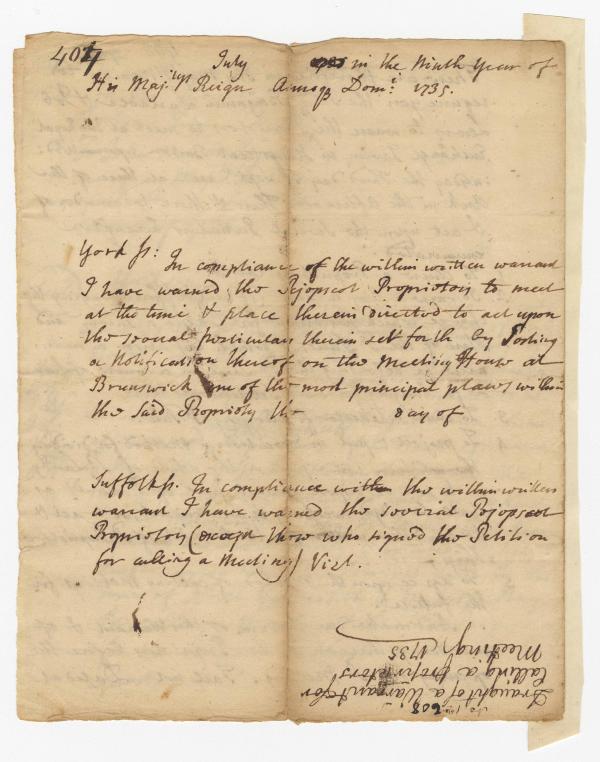 407
July in the Ninth Year of
His Maj:tys Reign Annoq Dom:i 1735.
York ss: In compliance of the within written warrant
I have warned the Pejopscot Proprietors to meet
at the time & place therein directed to act upon
the several particulars therein set forth by Posting
a Notification thereof on the Meeting House at
Brunswick one of the most principal places within
the said Propriety the day of
Suffolk ss. In compliance with the within written
warrant I have warned the several Pejopscot
Proprietors (except those who signed the Petition
for calling a Meeting) Vizt.
Draught of a Warrant for
Calling a Proprietors
Meeting 1735
608